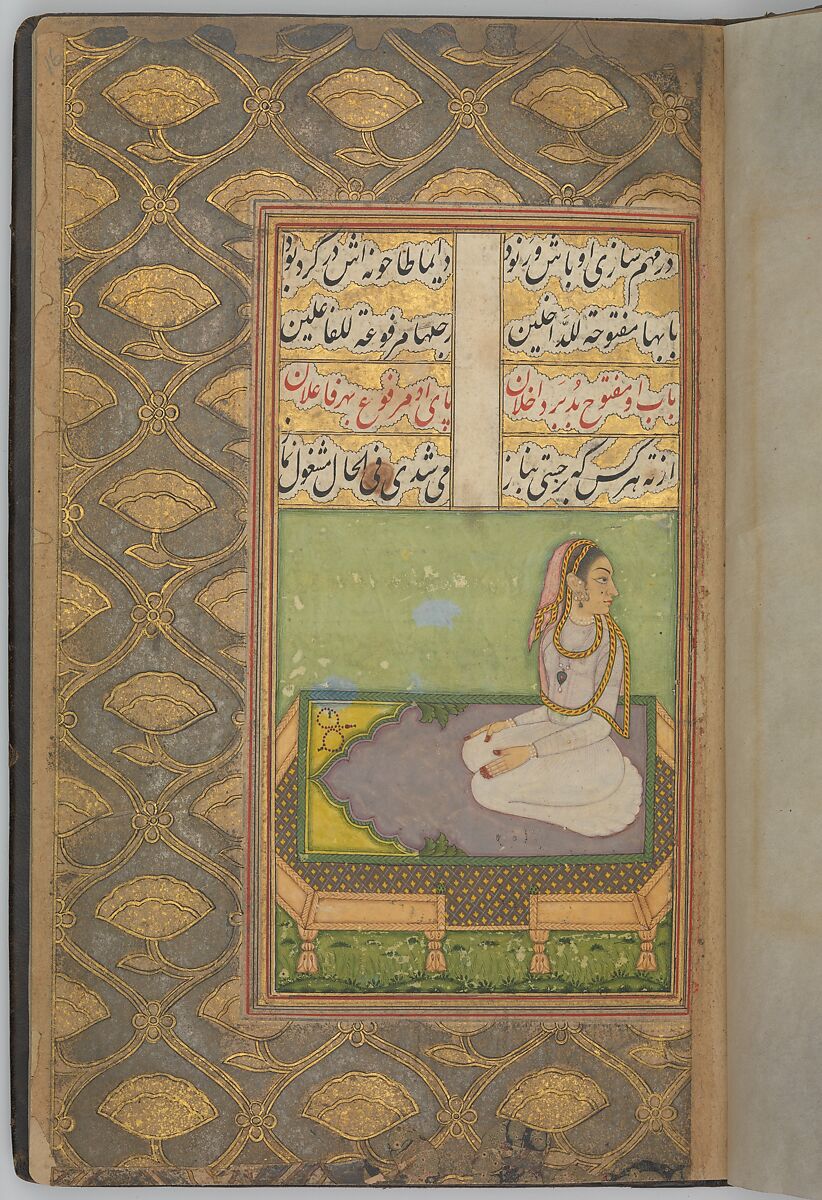 در مهم سازی اوباش و رنود دایما طاحونه اش در گرد بود
بابها مفتوحة للدّاخلین رجلها مرفوعة للفاعلین
باب او مفتوح بُد بَر داخلان پای او مرفوع بهر فاعلان
از ته هر کس که برجستی بناز می شدی فی الحال مشغول نماز